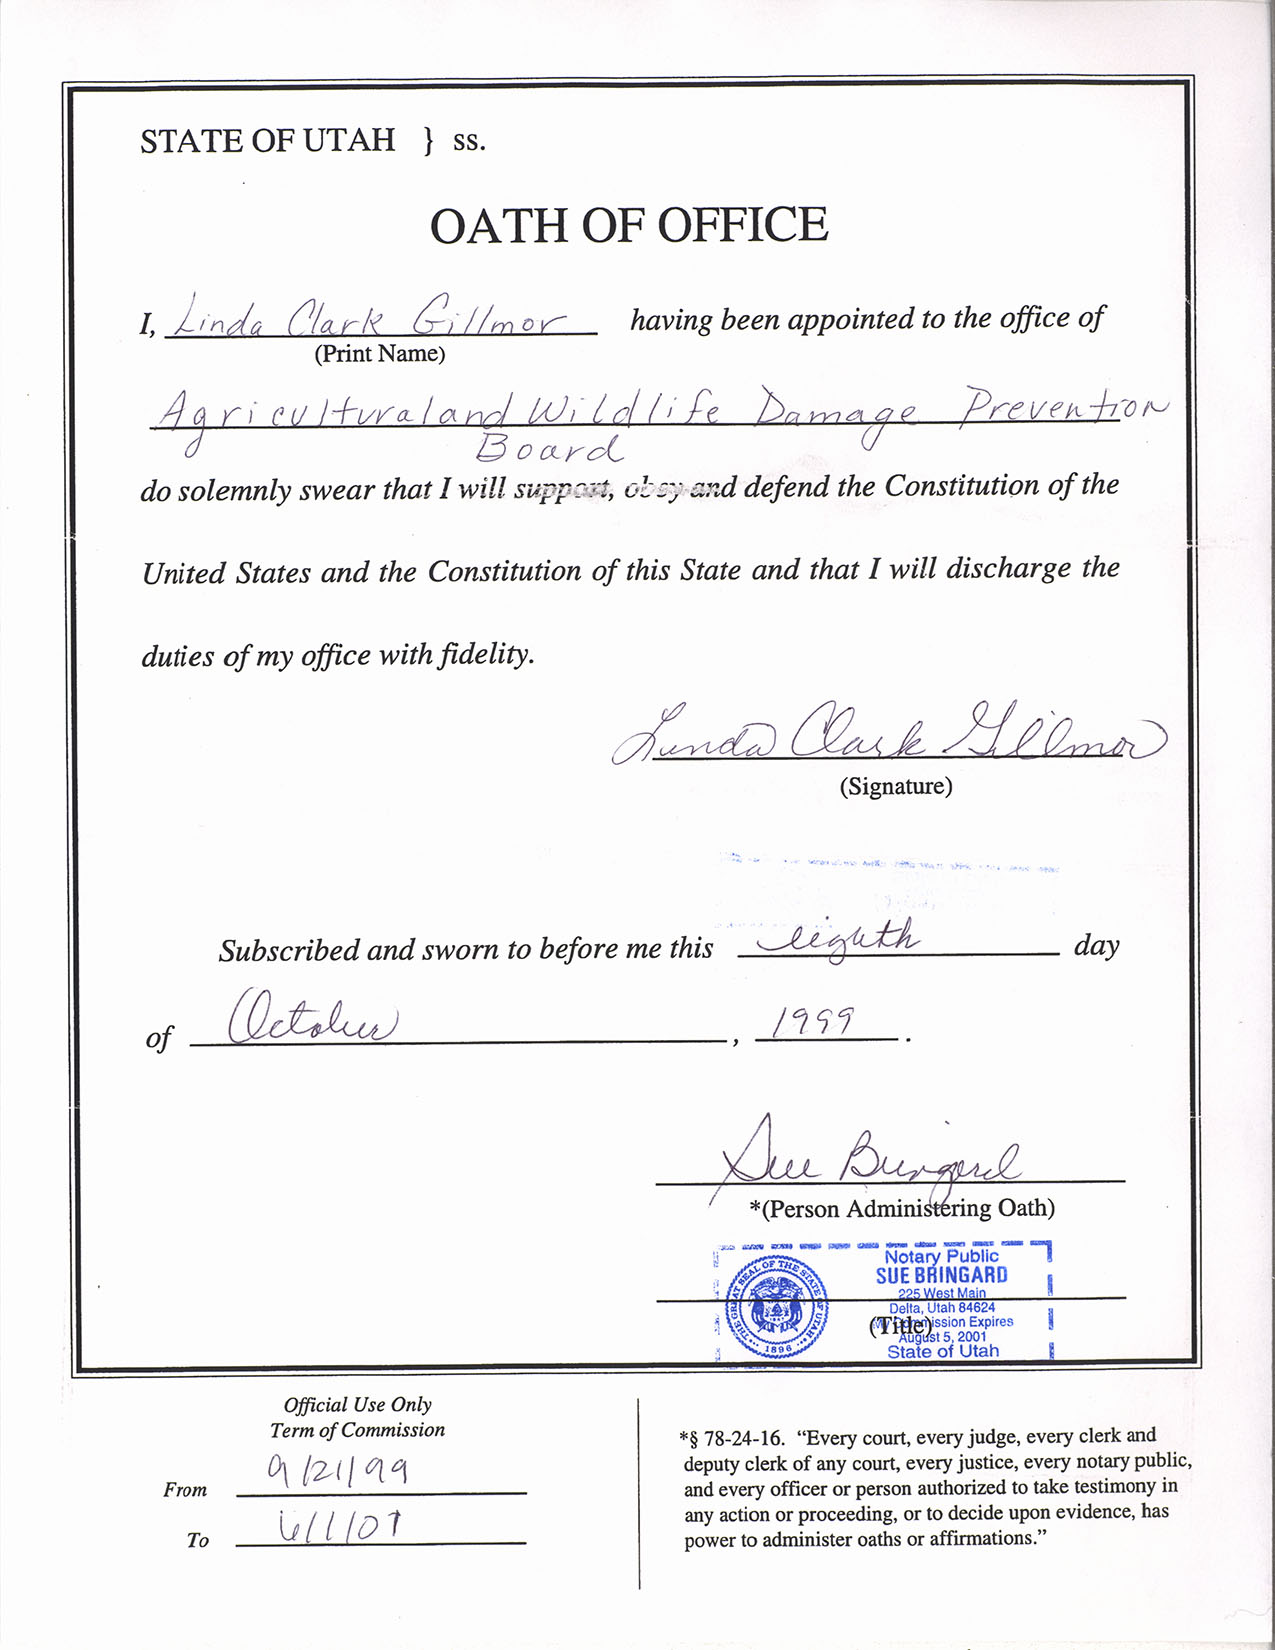 STATE OF UTAH } ss.
OATH OF OFFICE
I, Linda Clark Gillmor having been appointed to the office of
(Print Name)
Agricultural and Wildlife Damage Prevention
Board
do solemnly swear that I will support, obey and defend the Constitution of the
United States and the Constitution of this State and that I will discharge the
duties of my office with fidelity.
Linda Clark Gillmor
(Signature)
Subscribed and sworn to before me this eighth day
of October, 1999.
Sue Bringard
*(Person Administering Oath)
Notary Public
SUE BRINGARD
225 West Main
Delta, Utah 84624
My Commission Expires
August 5, 2001
State of Utah
THE GREAT SEAL OF THE STATE OF UTAH
1896
(Title)
Official Use Only
Term of Commission
From 9/21/99
To 6/1/01
*§ 78-24-16. “Every court, every judge, every clerk and
deputy clerk of any court, every justice, every notary public,
and every officer or person authorized to take testimony in
any action or proceeding, or to decide upon evidence, has
power to administer oaths or affirmations.”